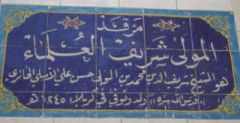 مرقد
المولى شريف العلماء
هو الشيخ شريف الدين محمد بن المولى حسن علي الآملي الحائري
ولد وتوفي في كربلاء ١٢٤٥هـ